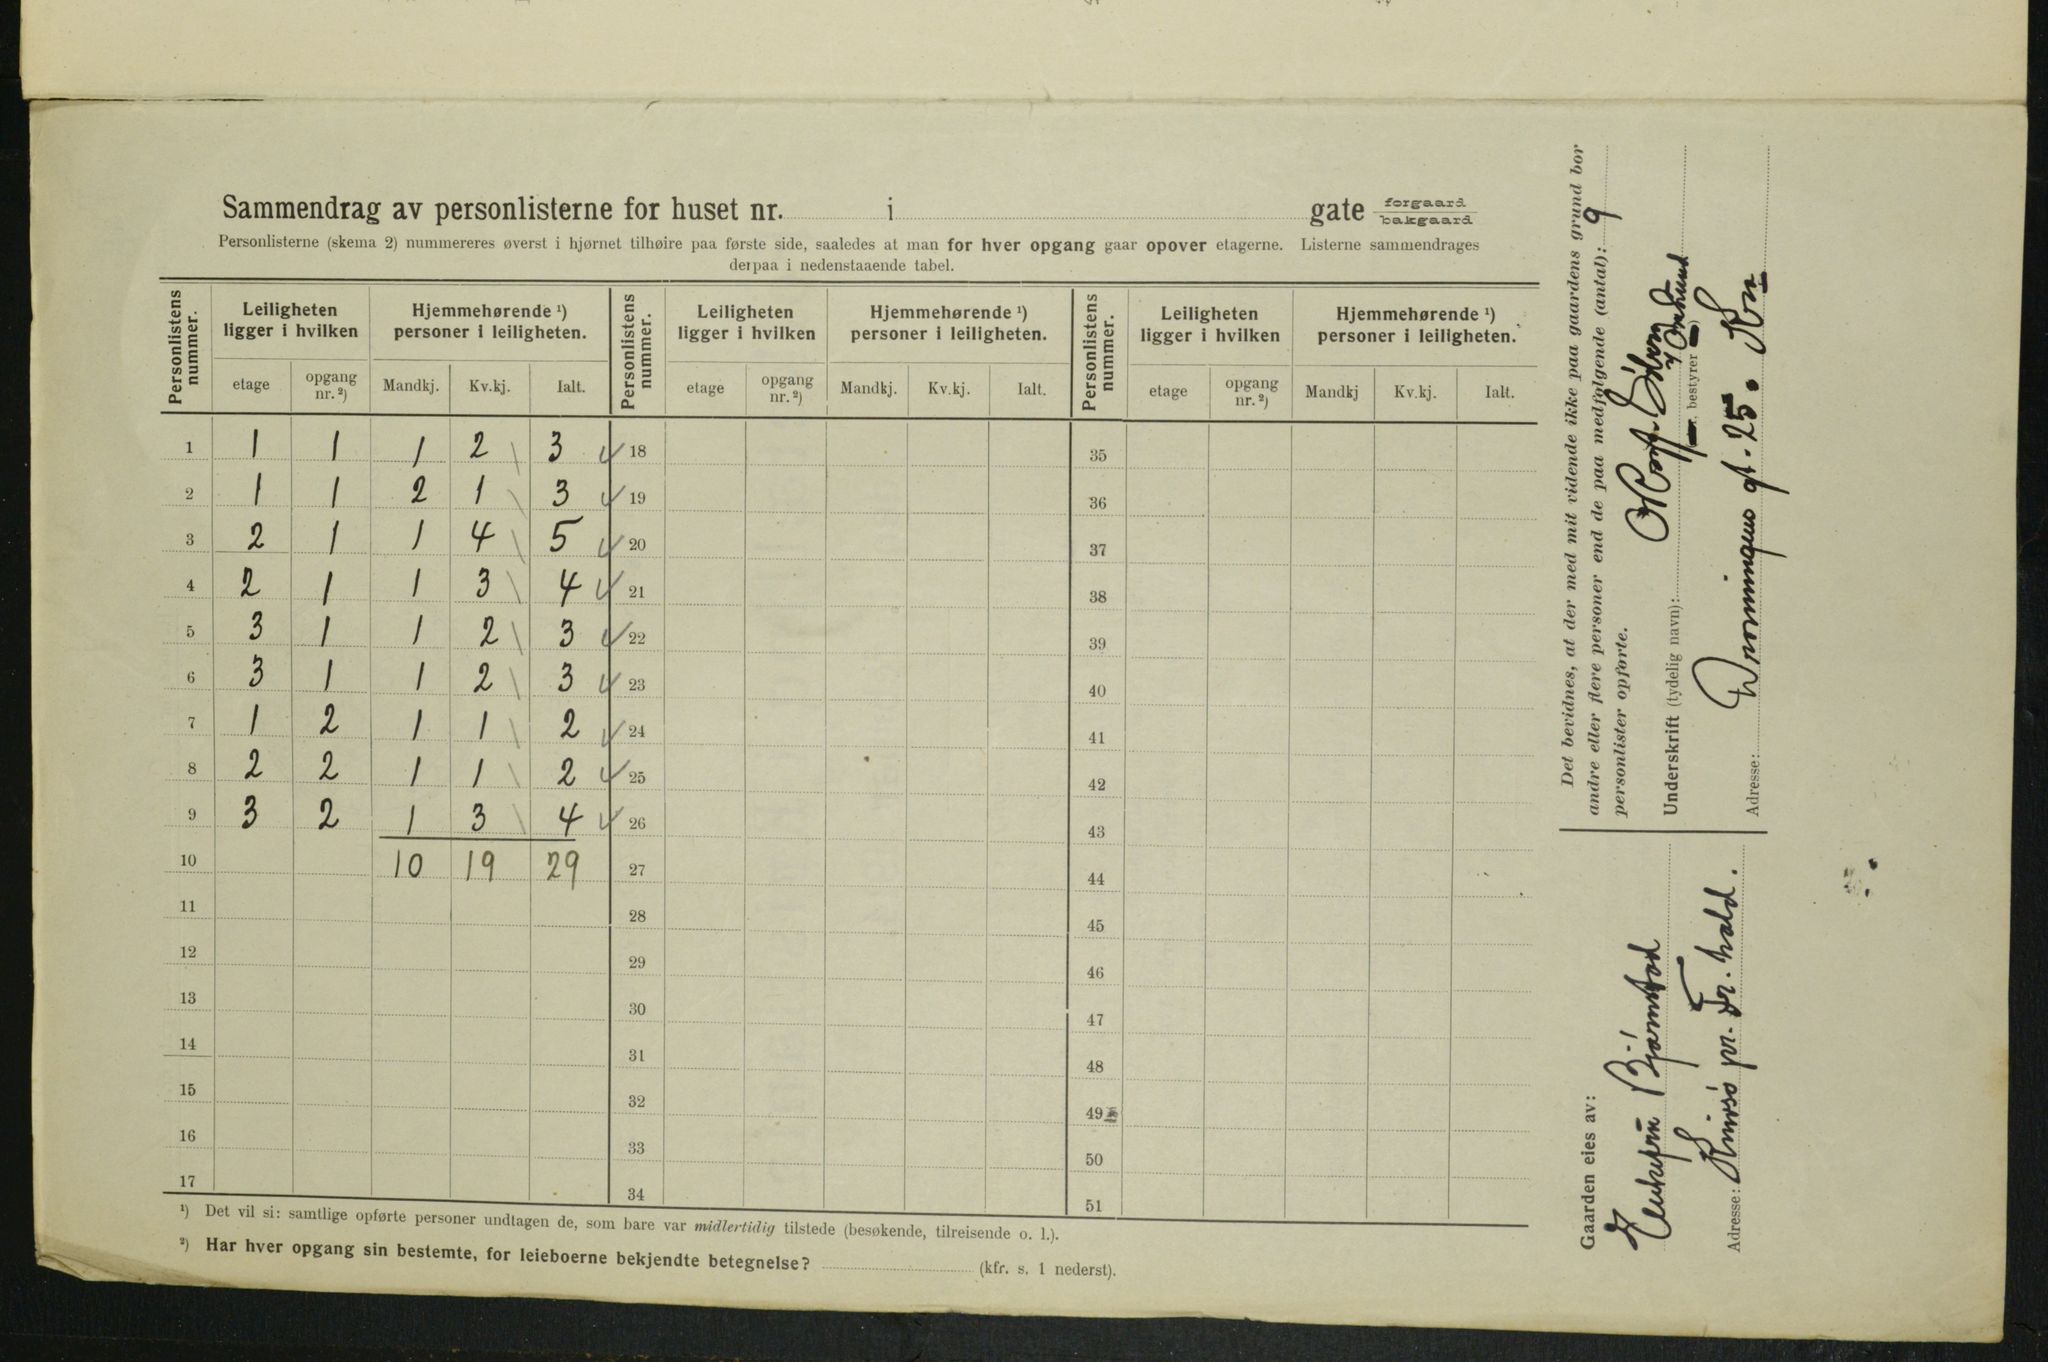 Sammendrag av personlisterne for huset nr. i gate forgaard bakgaard
Personlisterne (skema 2) nummereres øverst i hjørnet tilhøire paa første side, saaledes at man for hver opgang gaar opover etagerne. Listerne sammendrages
derpaa i nedenstaaende tabel.
Personlistens nummer. Leiligheten ligger i hvilken Hjemmehørende ¹) personer i leiligheten. Personlistens nummer. Leiligheten ligger i hvilken Hjemmehørende ¹) personer i leiligheten. Personlistens nummer. Leiligheten ligger i hvilken Hjemmehørende ¹) personer i leiligheten.
etage opgang nr. ²) Mandkj. Kv.kj. Ialt. etage opgang nr. ²) Mandkj. Kv.kj. Ialt. etage opgang nr. ²) Mandkj Kv.kj. Ialt.
1 1 1 1 2 3 18 35
2 1 1 2 1 3 19 36
3 2 1 1 4 5 20 37
4 2 1 1 3 4 21 38
5 3 1 1 2 3 22 39
6 3 1 1 2 3 23 40
7 1 2 1 1 2 24 41
8 2 2 1 1 2 25 42
9 3 2 1 3 4 26 43
10 10 19 29 27 44
11 28 45
12 29 46
13 30 47
14 31 48
15 32 49
16 33 50
17 34 51
¹) Det vil si: samtlige opførte personer undtagen de, som bare var midlertidig tilstede (besøkende, tilreisende o. l.).
²) Har hver opgang sin bestemte, for leieboerne bekjendte betegnelse? (kfr. s. 1 nederst).
Det bevidnes, at der med mit vidende ikke paa gaardens grund bor
andre eller flere personer end de paa medfølgende (antal): 9
personlister opførte.
Underskrift (tydelig navn):
bestyrer
Adresse: Dronningens gt. 25. Krn
Gaarden eies av:
Bjørnstad
Adresse: pr. Fr. hald.